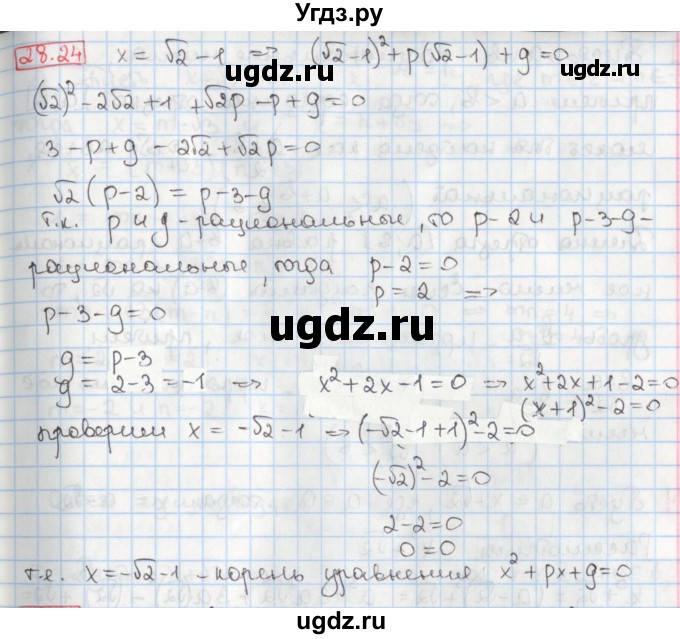 Угдз.ру
28.24 x = √2 - 1 => (√2-1)² + p(√2-1) + g = 0
ugdz.ru
(√2)² - 2√2 + 1 + √2p - p + g = 0
3 - p + g - 2√2 + √2p = 0
√2(p-2) = p-3-g
т.к. p и g - рациональные, то p-2 и p-3-g -
рациональные, тогда p-2=0
p = 2 =>
p-3-g=0
ugdz.ru
g = p-3
g = 2-3 = -1 => x²+2x-1=0 => x²+2x+1-2=0
(x+1)²-2=0
проверим x = -√2-1 => (-√2-1+1)²-2=0
(-√2)²-2=0
ugdz.ru
2-2=0
0=0
т.е. x=-√2-1 - корень уравнения x²+px+g=0
ugdz.ru